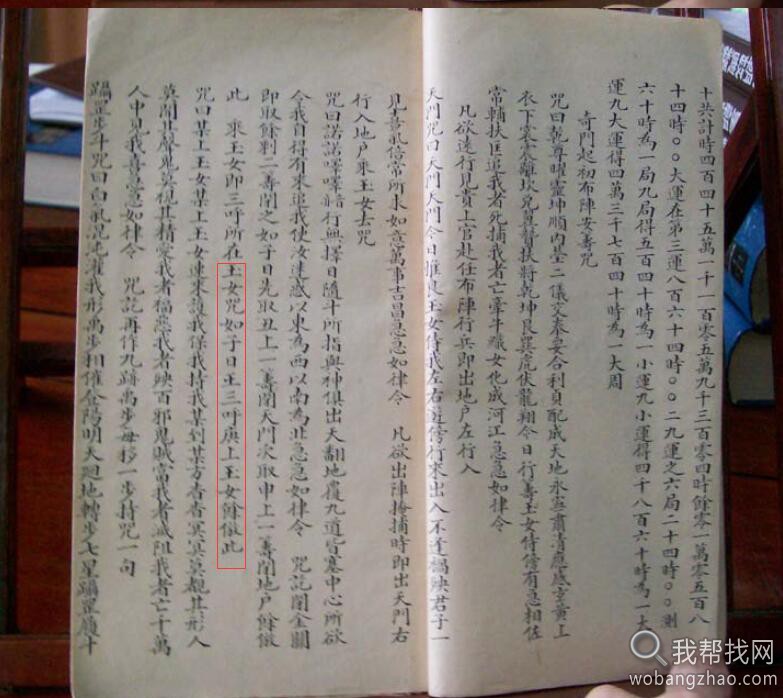 十共計時四百四十五萬一千一百零五萬九千三百零四時餘零一萬零五百八
十四時○○大運在第三運八百六十四時○○二九運之六局二十四時○○測
六十時為一局九局得五百四十時為一小運九小運得四千八百六十時為一大
運九大運得四萬三千七百四十時為一大周
奇門起初布陣安壽咒
咒曰乾尊曜靈坤順內營二儀交泰要合利貞配成天地永寧肅清應感玄黃上
衣下裳震離坎兌翼贊扶將乾坤艮巽虎伏龍翔今日行壽玉女侍傍有急相佐
常輔扶匡追我者死捕我者亡牽牛織女化成河江急急如律令
凡欲遠行見貴上官赴任布陣行兵即出地戶左行入
天門咒曰天門天門今日推良玉女侍我左右遊傍行來出入不逢禍殃君子一
見喜氣信常所求如意萬事吉昌急急如律令 凡欲出陣掩捕時即出天門右
行入地戶乘玉女去咒
咒曰諾諾嗶嗶諳行無擇日隨斗所指與神俱出天翻地覆九道皆塞中心所欲
令我自得有來追我使汝迷惑以東為西以南為北急急如律令 咒訖閉金關
即取餘剩二壽閉之如子日先取丑上一壽閉天門次取申上一壽閉地戶餘倣
此 乘玉女即三呼所在玉女咒如子日主三呼庚上玉女餘倣此
咒曰某上玉女某上玉女速來護我保我持我某到某方杳杳冥冥莫覩其形人
莫聞其聲鬼莫視其精愛我者福惡我者殃百邪鬼賊當我者滅阻我者亡千萬
人中見我喜急急如律令 咒訖再作九跡禹步每移一步持咒一句
躡罡步斗咒曰白氣混沌灌我形禹步相催登陽明天迴地轉步七星躡罡履斗
我帮找网
wobangzhao.com